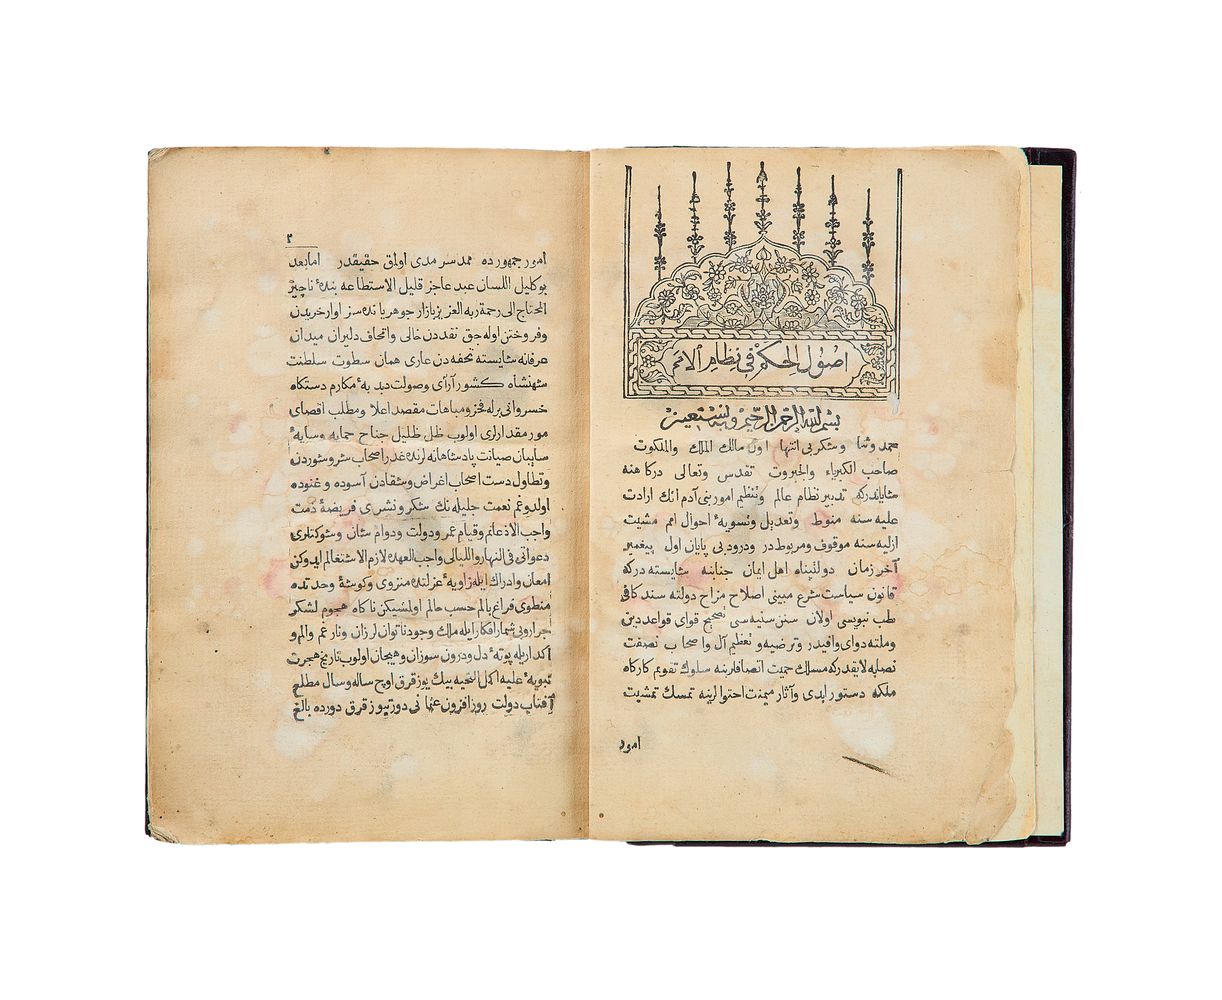 اصول الحكم في نظام الامم
بسم الله الرحمن الرحيم وبه نستعين
حمد وثنا وشكر بى انتها اول مالك الملك والملكوت
صاحب الكبرياء والجبروت تقدس وتعالى دركاهنه
شاياندركه تدبير نظام عالم وتنظيم امور بنى آدم انك ارادت
عليه سنه منوط وتعديل وتسويه ٔ احوال امم مشيت
ازليه سنه موقوف ومربوطدر ودرود بى پايان اول پيغمبر
آخر زمان دولتپناه اهل ايمان جنابنه شايسته دركه
قانون سياست شرع مبينى اصلاح مزاج دولته سند كافى
طب نبويسى اولان سنن سنيه سى تصحيح قواى قواعد دين
وملته دواى وافيدر وترضيه و تعظيم آل واصحاب نصفت
نصابه لايقدركه مسالك حميت اتصافلرينه سلوك تقويم كاركاه
ملكه دستور ابدى وآثار ميمنت احتوالرينه تمسك تمشيت
امور
٢
امور جمهورده ممد سرمدى اولمق حقيقدر امابعد
بوكليل اللسان عبد عاجز قليل الاستطاعه بنده ٔ ناچيز
المحتاج الى رحمة ربه العزيز بازار جوهريانده سزاوار خريدن
وفروختن اوله جق نقددن خالى واتحاف دليران ميدان
عرفانه شايسته تحفه دن عارى همان سطوت سلطنت
شهنشاه كشور آراى وصولت دبدبه ٔ مكارم دستكاه
خسروانى برله فخر ومباهات مقصد اعلا ومطلب اقصاى
مور مقدارلرى اولوب ظل ظليل جناح حمايه وسايه ٔ
سايبان صيانت پادشاهانه لرنده غدر اصحاب شر وشوردن
وتطاول دست اصحاب اغراض وشقادن آسوده وغنوده
اولدوغم نعمت جليله نك شكر ونشرى فريضه ٔ ذمت
واجب الاذعانم وقيام عمر ودولت ودوام شان وشوكتلرى
دعواتى فى النهار والليالى واجب العهده لازم الاشتغالم ايدوكن
امعان وادراك ايله زاويه ٔ عزلتده منزوى وكوشه ٔ وحدتده
منطوى فراغ بالم حسب حالم اولمشيكن ناكاه هجوم لشكر
جرار وبى شمار افكار ايله ملك وجود ناتوان لرزان ونار غم والم و
اكدار ايله پوته ٔ دل ودرون سوزان وهيجان اولوب تاريخ هجرت
نبويه ٔ عليه اكمل التحيه بيك يوز قرق اوچ ساله وسال مطلع
آفتاب دولت روز افزون عثمانى دورتيوز قرق دورده بالغ